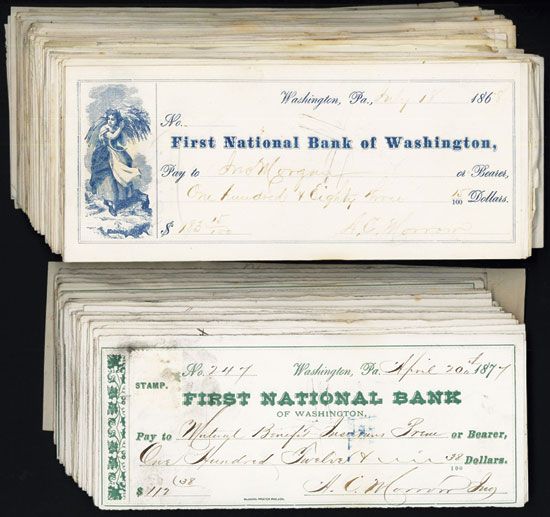 Washington, Pa., July 18 1868
No.
First National Bank of Washington,
Pay to Jno Morgan or Bearer,
One hundred & Eighty three 15/100 Dollars.
$ 183 15/100 A. C. Morrow
No. 247 Washington, Pa. April 20th 1877
STAMP.
FIRST NATIONAL BANK
OF WASHINGTON,
Pay to Mutual Benefit Insurans or Bearer,
One Hundred Twelve & 38/100 Dollars.
$112 38 A. C. Morrow